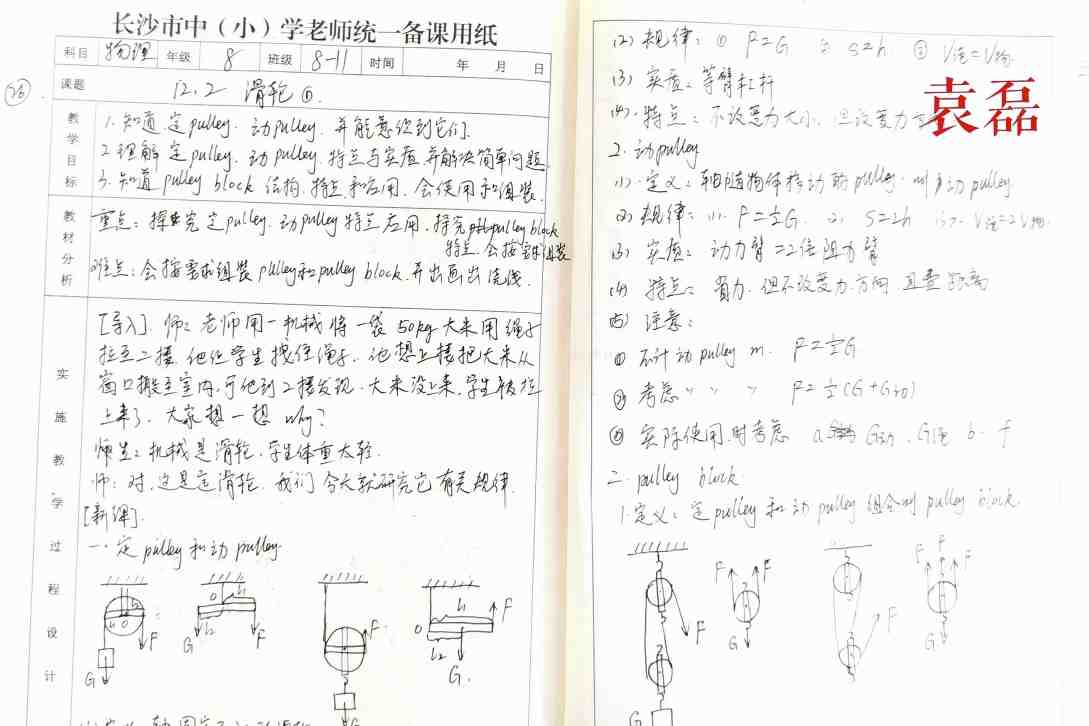 长沙市中（小）学老师统一备课用纸
科目 物理 年级 8 班级 8-11 时间 年 月 日
26
课题 12.2 滑轮①
教学目标
1.知道定pulley.动pulley.并能意识到它们.
2.理解定pulley.动pulley.特点与实质并解决简单问题.
3.知道pulley block结构.特点和应用.会使用和组装.
教材分析
重点：探究定pulley.动pulley特点应用.探究pulley block
特点.会按要求组装
难点：会按要求组装pulley和pulley block.并画出绕线.
实施教学过程设计
[导入].师：老师用一机械将一袋50kg大米用绳子
拉至二楼.他让学生拽住绳子.他想上楼把大米从
窗口搬至室内.可他到二楼发现.大米没上来.学生被拉
上来了.大家想一想why?
师生：机械是滑轮.学生体重太轻.
师：对.这是定滑轮.我们今天就研究它有关规律.
[新课].
一.定pulley和动pulley.
O F G
O l₁ l₂ G F
F G
O l₁ l₂ F G.
(2)规律：① F=G ② s=h ③ V绳=V物.
(3)实质：等臂杠杆
(4).特点：不改变力大小.但改变力方
袁磊
2.动pulley
(1).定义：轴随物体移动的pulley.叫动pulley
(2)规律：(1).F=½G. (2) S=2h (3).V绳=2V物.
(3)实质：动力臂=2倍阻力臂
(4)特点：省力.但不改变力方向.且费距离
(5)注意：
① 不计动pulley m. F=½G
② 考虑 〃 〃 〃 F=½(G+G动)
③ 实际使用时考虑 a G动.G绳 b.f
二.pulley block.
1.定义：定pulley和动pulley组合叫pulley block.
F
F F G
F
F F F G